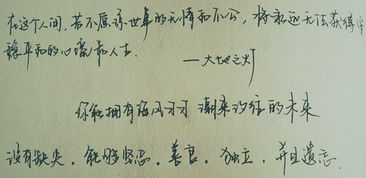 在这个人间，若不原谅世事的无情和不公，将永远无法获得安
稳平和的心境和人生。
——大地之灯
你能拥有海风习习 潮来汐往的未来
没有缺失。能够坚忍。善良。独立。并且遗忘。